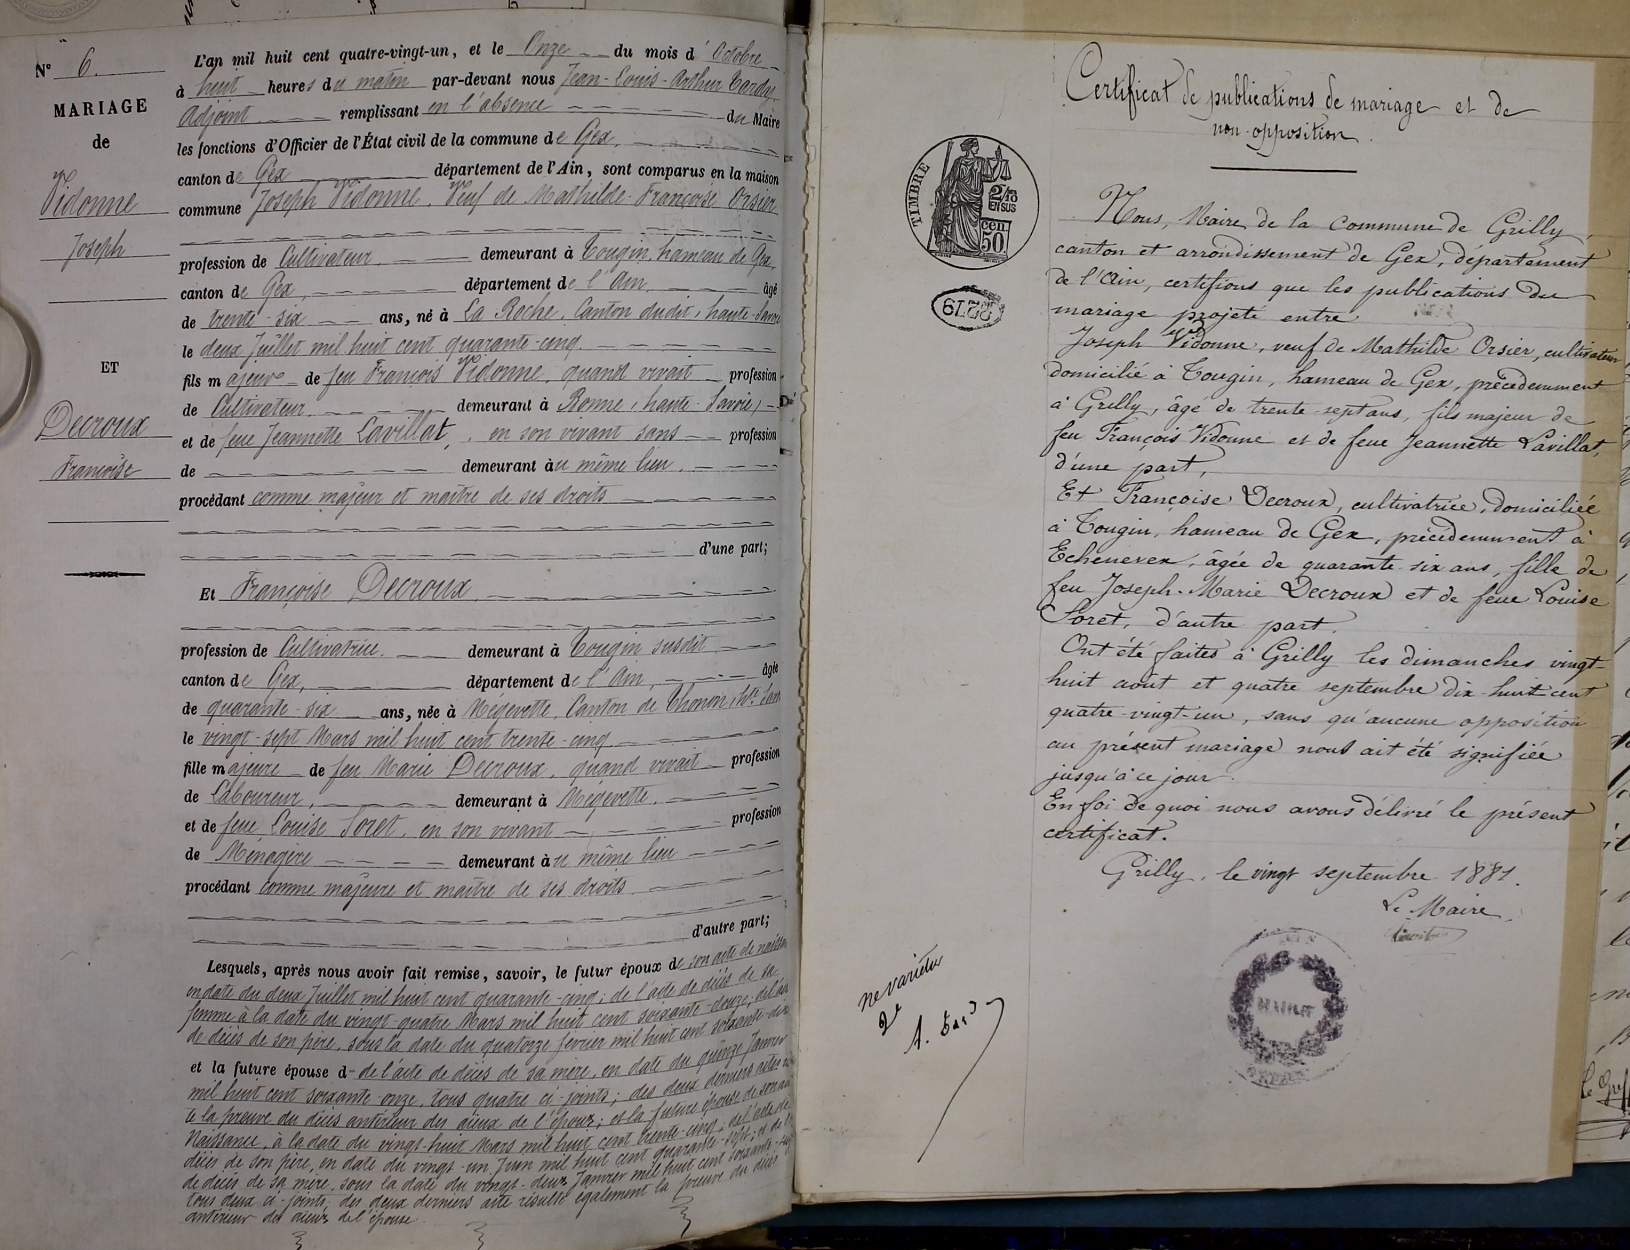 N° 6.
MARIAGE
de
Vidonne
Joseph
ET
Decroux
Françoise
L'an mil huit cent quatre-vingt-un, et le Onze du mois d'Octobre
à huit heures du matin par-devant nous Jean-Louis-Arthur Tardy,
Adjoint remplissant en l'absence du Maire
les fonctions d'Officier de l'État civil de la commune de Gex,
canton de Gex département de l'Ain, sont comparus en la maison
commune Joseph Vidonne, Veuf de Mathilde-Françoise Orsier
profession de Cultivateur demeurant à Tougin, hameau de Gex,
canton de Gex, département de l'Ain, âgé
de trente-six ans, né à La Roche, Canton dudit, haute-Savoie
le deux Juillet mil huit cent quarante-cinq
fils majeur de feu François Vidonne, quand vivait profession
de Cultivateur demeurant à Bonne, (haute-Savoie)
et de feue Jeannette Lavillat, en son vivant sans profession
de demeurant au même lieu,
procédant comme majeur et maître de ses droits
d'une part;
Et Françoise Decroux
profession de Cultivatrice demeurant à Tougin susdit
canton de Gex, département de l'Ain, âgée
de quarante-six ans, née à Mégevette, Canton de Thonon, hte Sav
le vingt-sept Mars mil huit cent trente-cinq
fille majeure de feu Marie Decroux, quand vivait profession
de Laboureur, demeurant à Mégevette,
et de feue Louise Soret, en son vivant profession
de Ménagère demeurant au même lieu
procédant comme majeure et maître de ses droits
d'autre part;
Lesquels, après nous avoir fait remise, savoir, le futur époux de son acte de naissan
en date du deux Juillet mil huit cent quarante-cinq; de l'acte de décès de sa
femme à la date du vingt-quatre Mars mil huit cent soixante-douze; de l'acte
de décès de son père, sous la date du quatorze février mil huit cent soixante-dix
et la future épouse d- de l'acte de décès de sa mère, en date du quinze Janvier
mil huit cent soixante onze, tous quatre ci-joints; des deux derniers actes
te la preuve du décès antérieur des aïeux de l'époux; et la future épouse de son acte
Naissance, à la date du vingt-huit Mars mil huit cent trente-cinq; de l'acte de
décès de son père, en date du vingt-un Juin mil huit cent quarante-sept; et de l'
de décès de sa mère, sous la date du vingt-deux Janvier mil huit cent soixante-
tous deux ci-joints, des deux derniers acte résulte également la preuve du décès
antérieur des aïeux de l'épouse.
Certificat de publications de mariage et de
non-opposition.
TIMBRE
2/10
EN SUS
50 cen.
2279
Nous, Maire de la commune de Grilly,
canton et arrondissement de Gex, département
de l'Ain, certifions que les publications du
mariage projeté entre
Joseph Vidonne, veuf de Mathilde Orsier, cultivateur
domicilié à Tougin, hameau de Gex, précédemment
à Grilly, âgé de trente-sept ans, fils majeur de
feu François Vidonne et de feue Jeannette Lavillat,
d'une part,
Et Françoise Decroux, cultivatrice, domiciliée
à Tougin, hameau de Gex, précédemment à
Echenevex, âgée de quarante-six ans, fille de
feu Joseph-Marie Decroux et de feue Louise
Soret, d'autre part.
Ont été faites à Grilly les dimanches vingt-
huit août et quatre septembre dix-huit cent
quatre-vingt-un, sans qu'aucune opposition
au présent mariage nous ait été signifiée
jusqu'à ce jour.
En foi de quoi nous avons délivré le présent
certificat.
Grilly, le vingt septembre 1881.
Le Maire,
ne varietur
A. Tardy